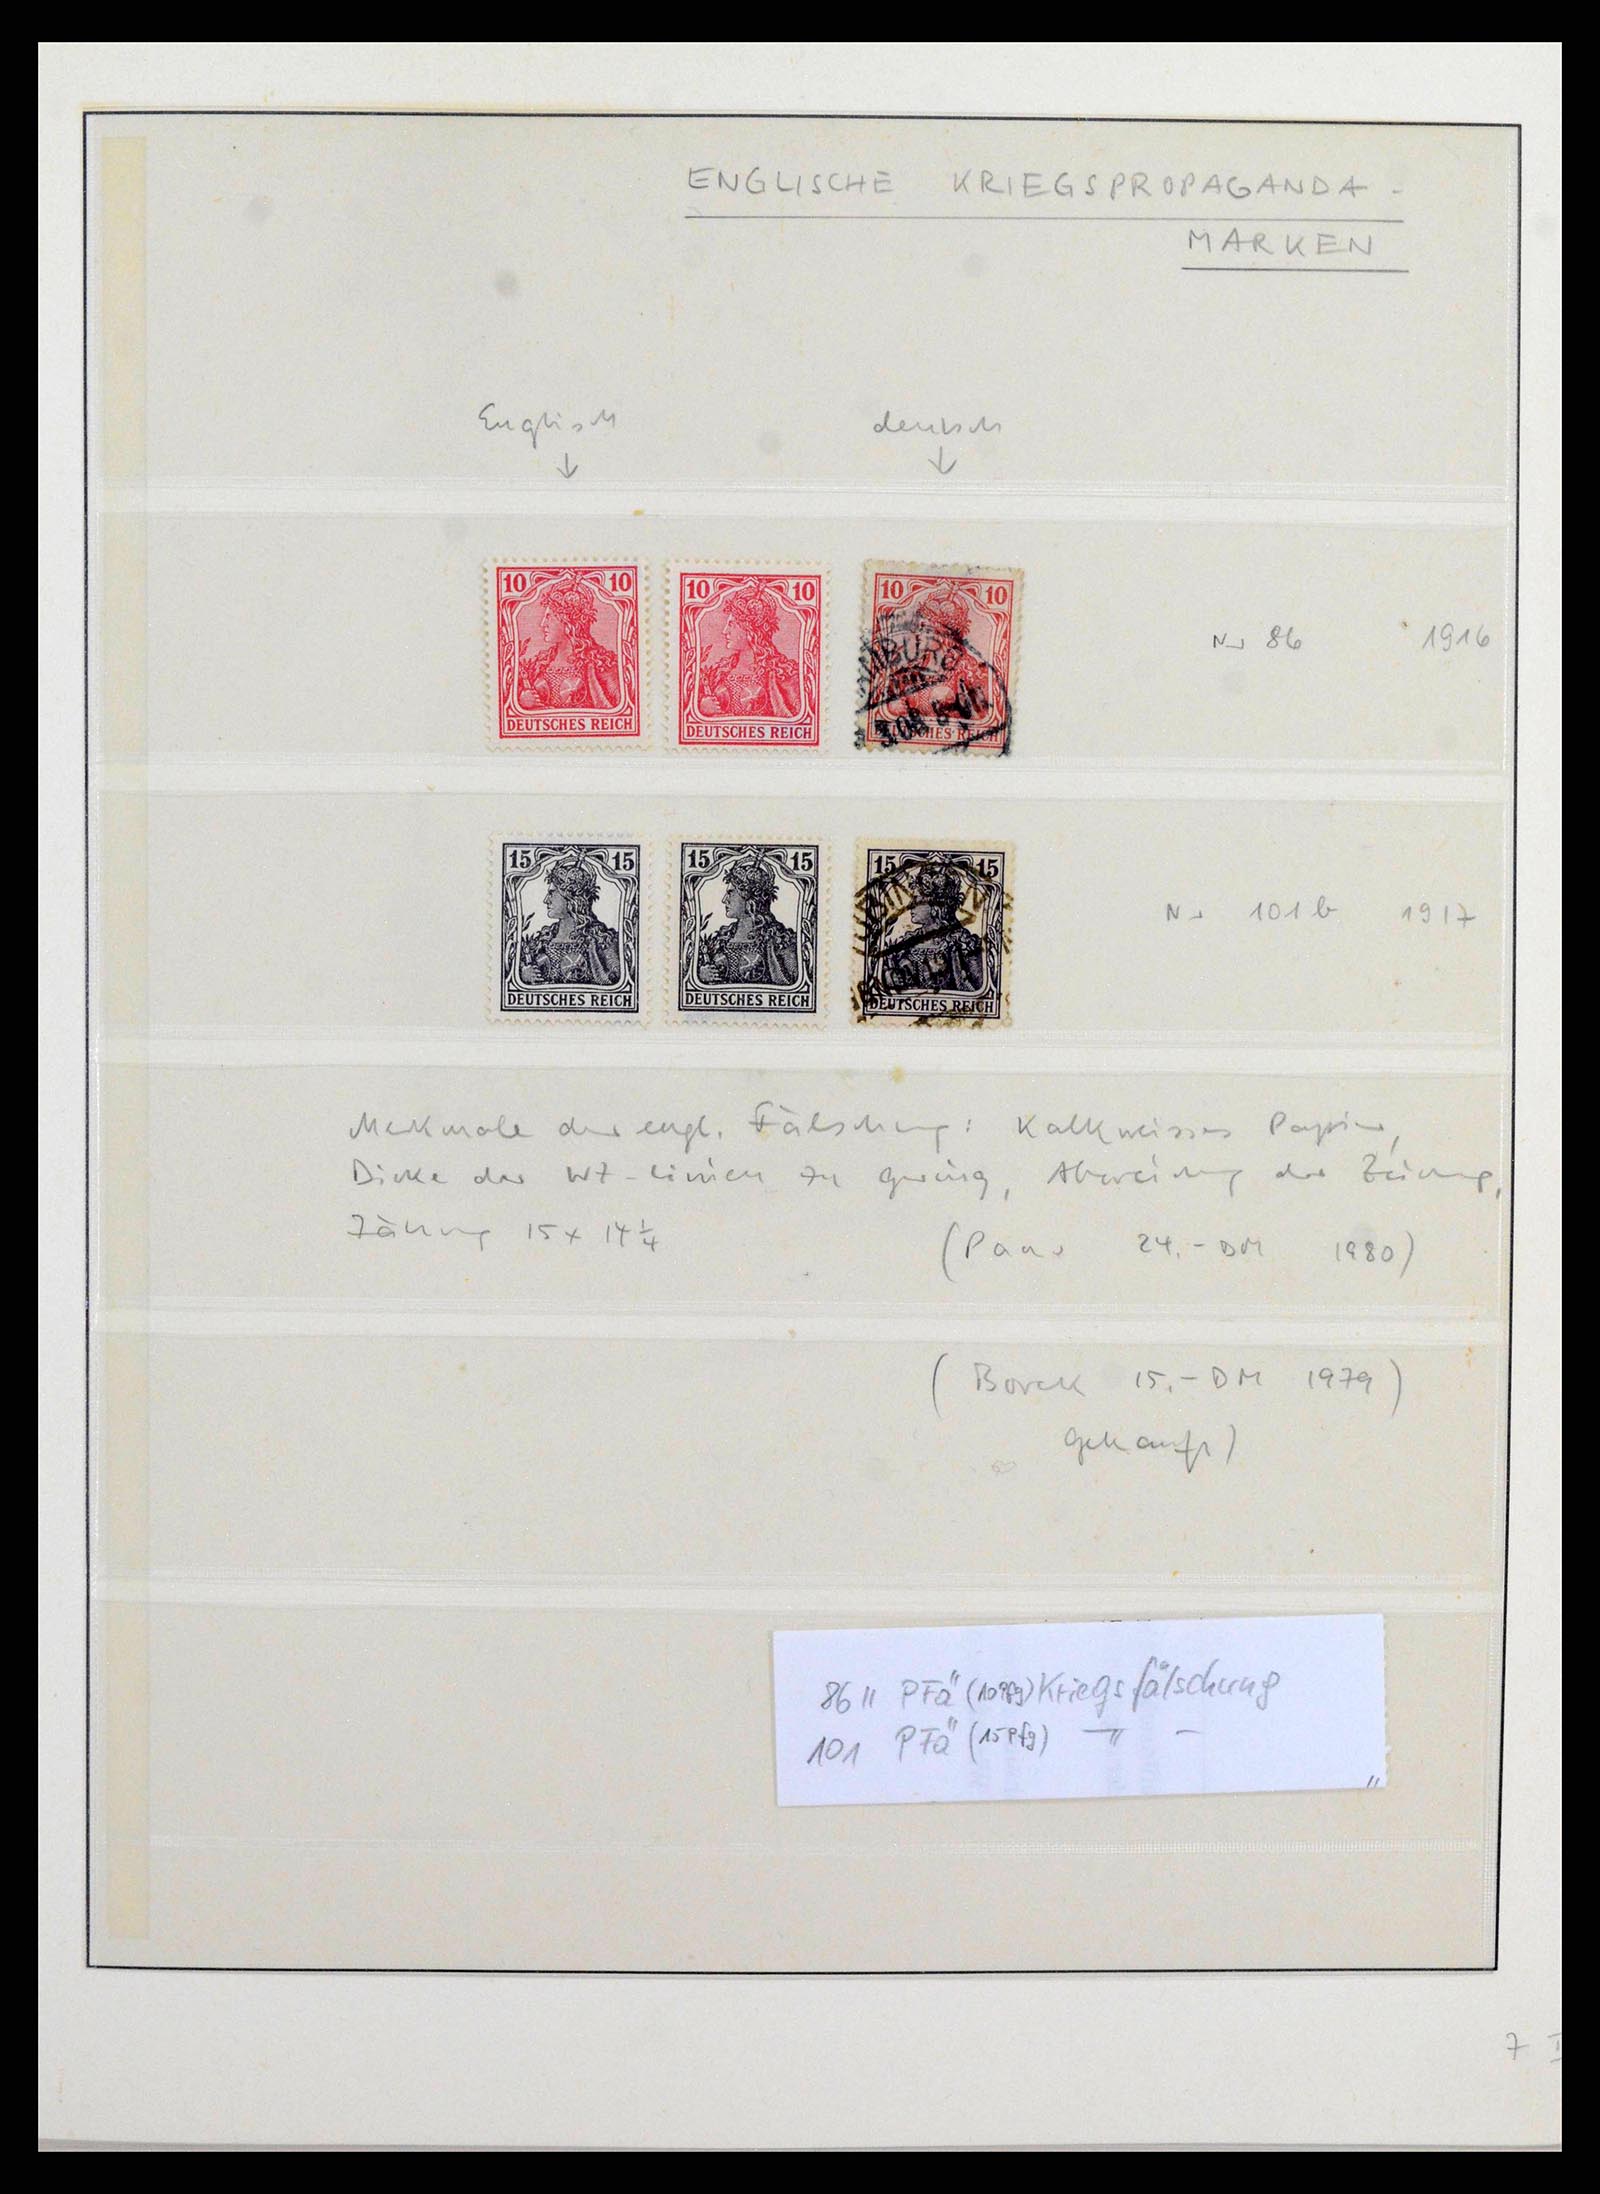 ENGLISCHE KRIEGSPROPAGANDA-
MARKEN
Englisch deutsch
10 10 10 10 10 10
DEUTSCHES REICH DEUTSCHES REICH DEUTSCHES REICH
Nr 86 1916
15 15 15 15 15 15
DEUTSCHES REICH DEUTSCHES REICH DEUTSCHES REICH
Nr 101 b 1917
Merkmale der engl. Fälschung: Kalkweisses Papier,
Dicke der WZ-Linien zu gering, Abweichung der Zeichnung,
Zähnung 15 x 14 1/4 (Paar 24,- DM 1980)
(Borek 15,- DM 1979)
gekauft)
86 II PFä (10 Pfg) Kriegsfälschung
101 PFä (15 Pfg) —"—
7